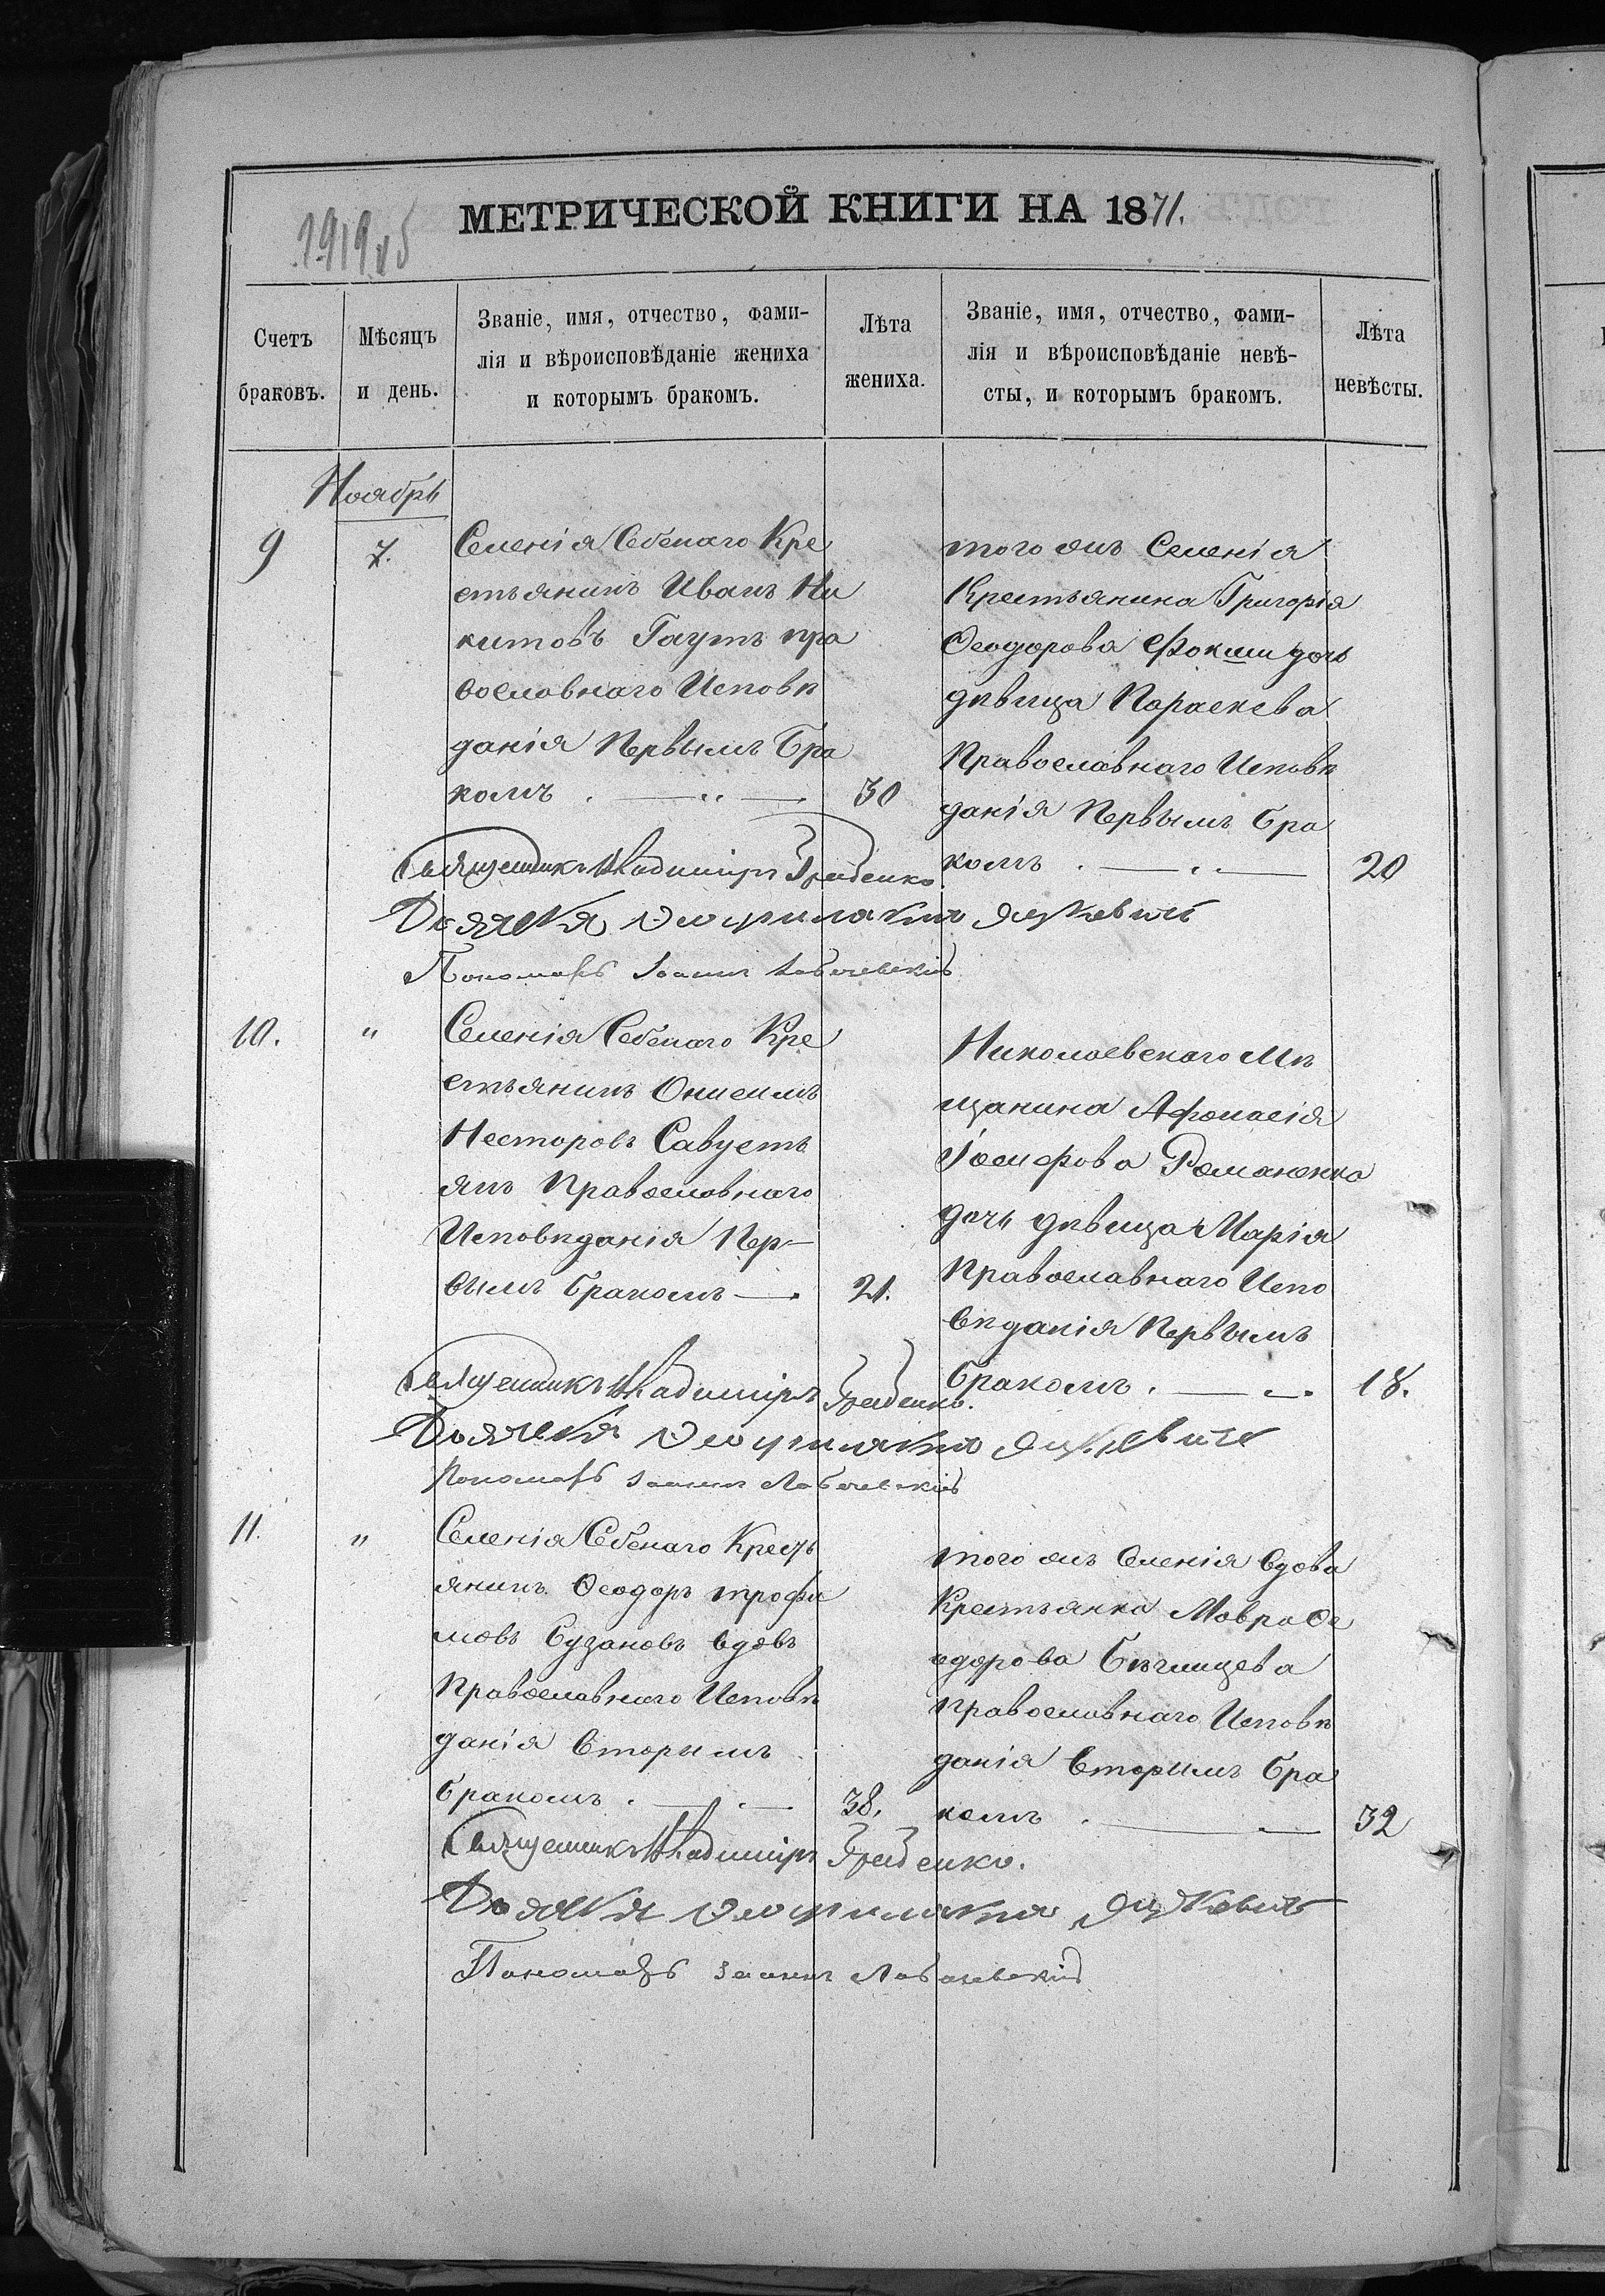 МЕТРИЧЕСКОЙ КНИГИ НА 1871.
Счетъ браковъ.
Мѣсяцъ и день.
Званіе, имя, отчество, фами-
лія и вѣроисповѣданіе жениха
и которымъ бракомъ.
Лѣта жениха.
Званіе, имя, отчество, фами-
лія и вѣроисповѣданіе невѣ-
сты, и которымъ бракомъ.
Лѣта невѣсты.
Ноябрь
9
7.
Селенія Себенаго Кре
стьянинъ Иванъ Ни
китовъ Гаутъ пра
вославнаго Исповѣ
данія Первымъ Бра
комъ . — " — .
30
того же Селенія
Крестьянина Григорія
Ѳеодорова Фокши дочь
дѣвица Параскева
Православнаго Исповѣ
данія Первымъ бра
комъ . — . . —
20
Священникъ Владиміръ
Дьячекъ Ѳеофилактъ Яцкевичъ
Пономарь Іоаннъ Лобачевскій
10.
"
Селенія Себенаго Кре
стьянинъ Онисимъ
Несторовъ Савуст
янъ Православнаго
Исповѣданія Пер-
вымъ бракомъ — .
21.
Николаевскаго Мѣ
щанина Афонасія
Іосифова Романенка
дочь дѣвица Марія
Православнаго Испо
вѣданія Первымъ
бракомъ . — . .
18.
Священникъ Владиміръ
Дьячекъ Ѳеофилактъ Яцкевичъ
Пономарь Іоаннъ Лобачевскій
11.
"
Селенія Себенаго Кресть
янинъ Ѳеодоръ трофи
мовъ Сузановъ вдовъ
Православнаго Исповѣ
данія Вторымъ
бракомъ . — . —
38.
того же Селенія вдова
Крестьянка Мавра Ѳе
одорова
православнаго Исповѣ
данія вторымъ бра
комъ . — —
32
Священникъ Владиміръ
Дьячекъ Ѳеофилактъ Яцкевичъ
Пономарь Іоаннъ Лобачевскій